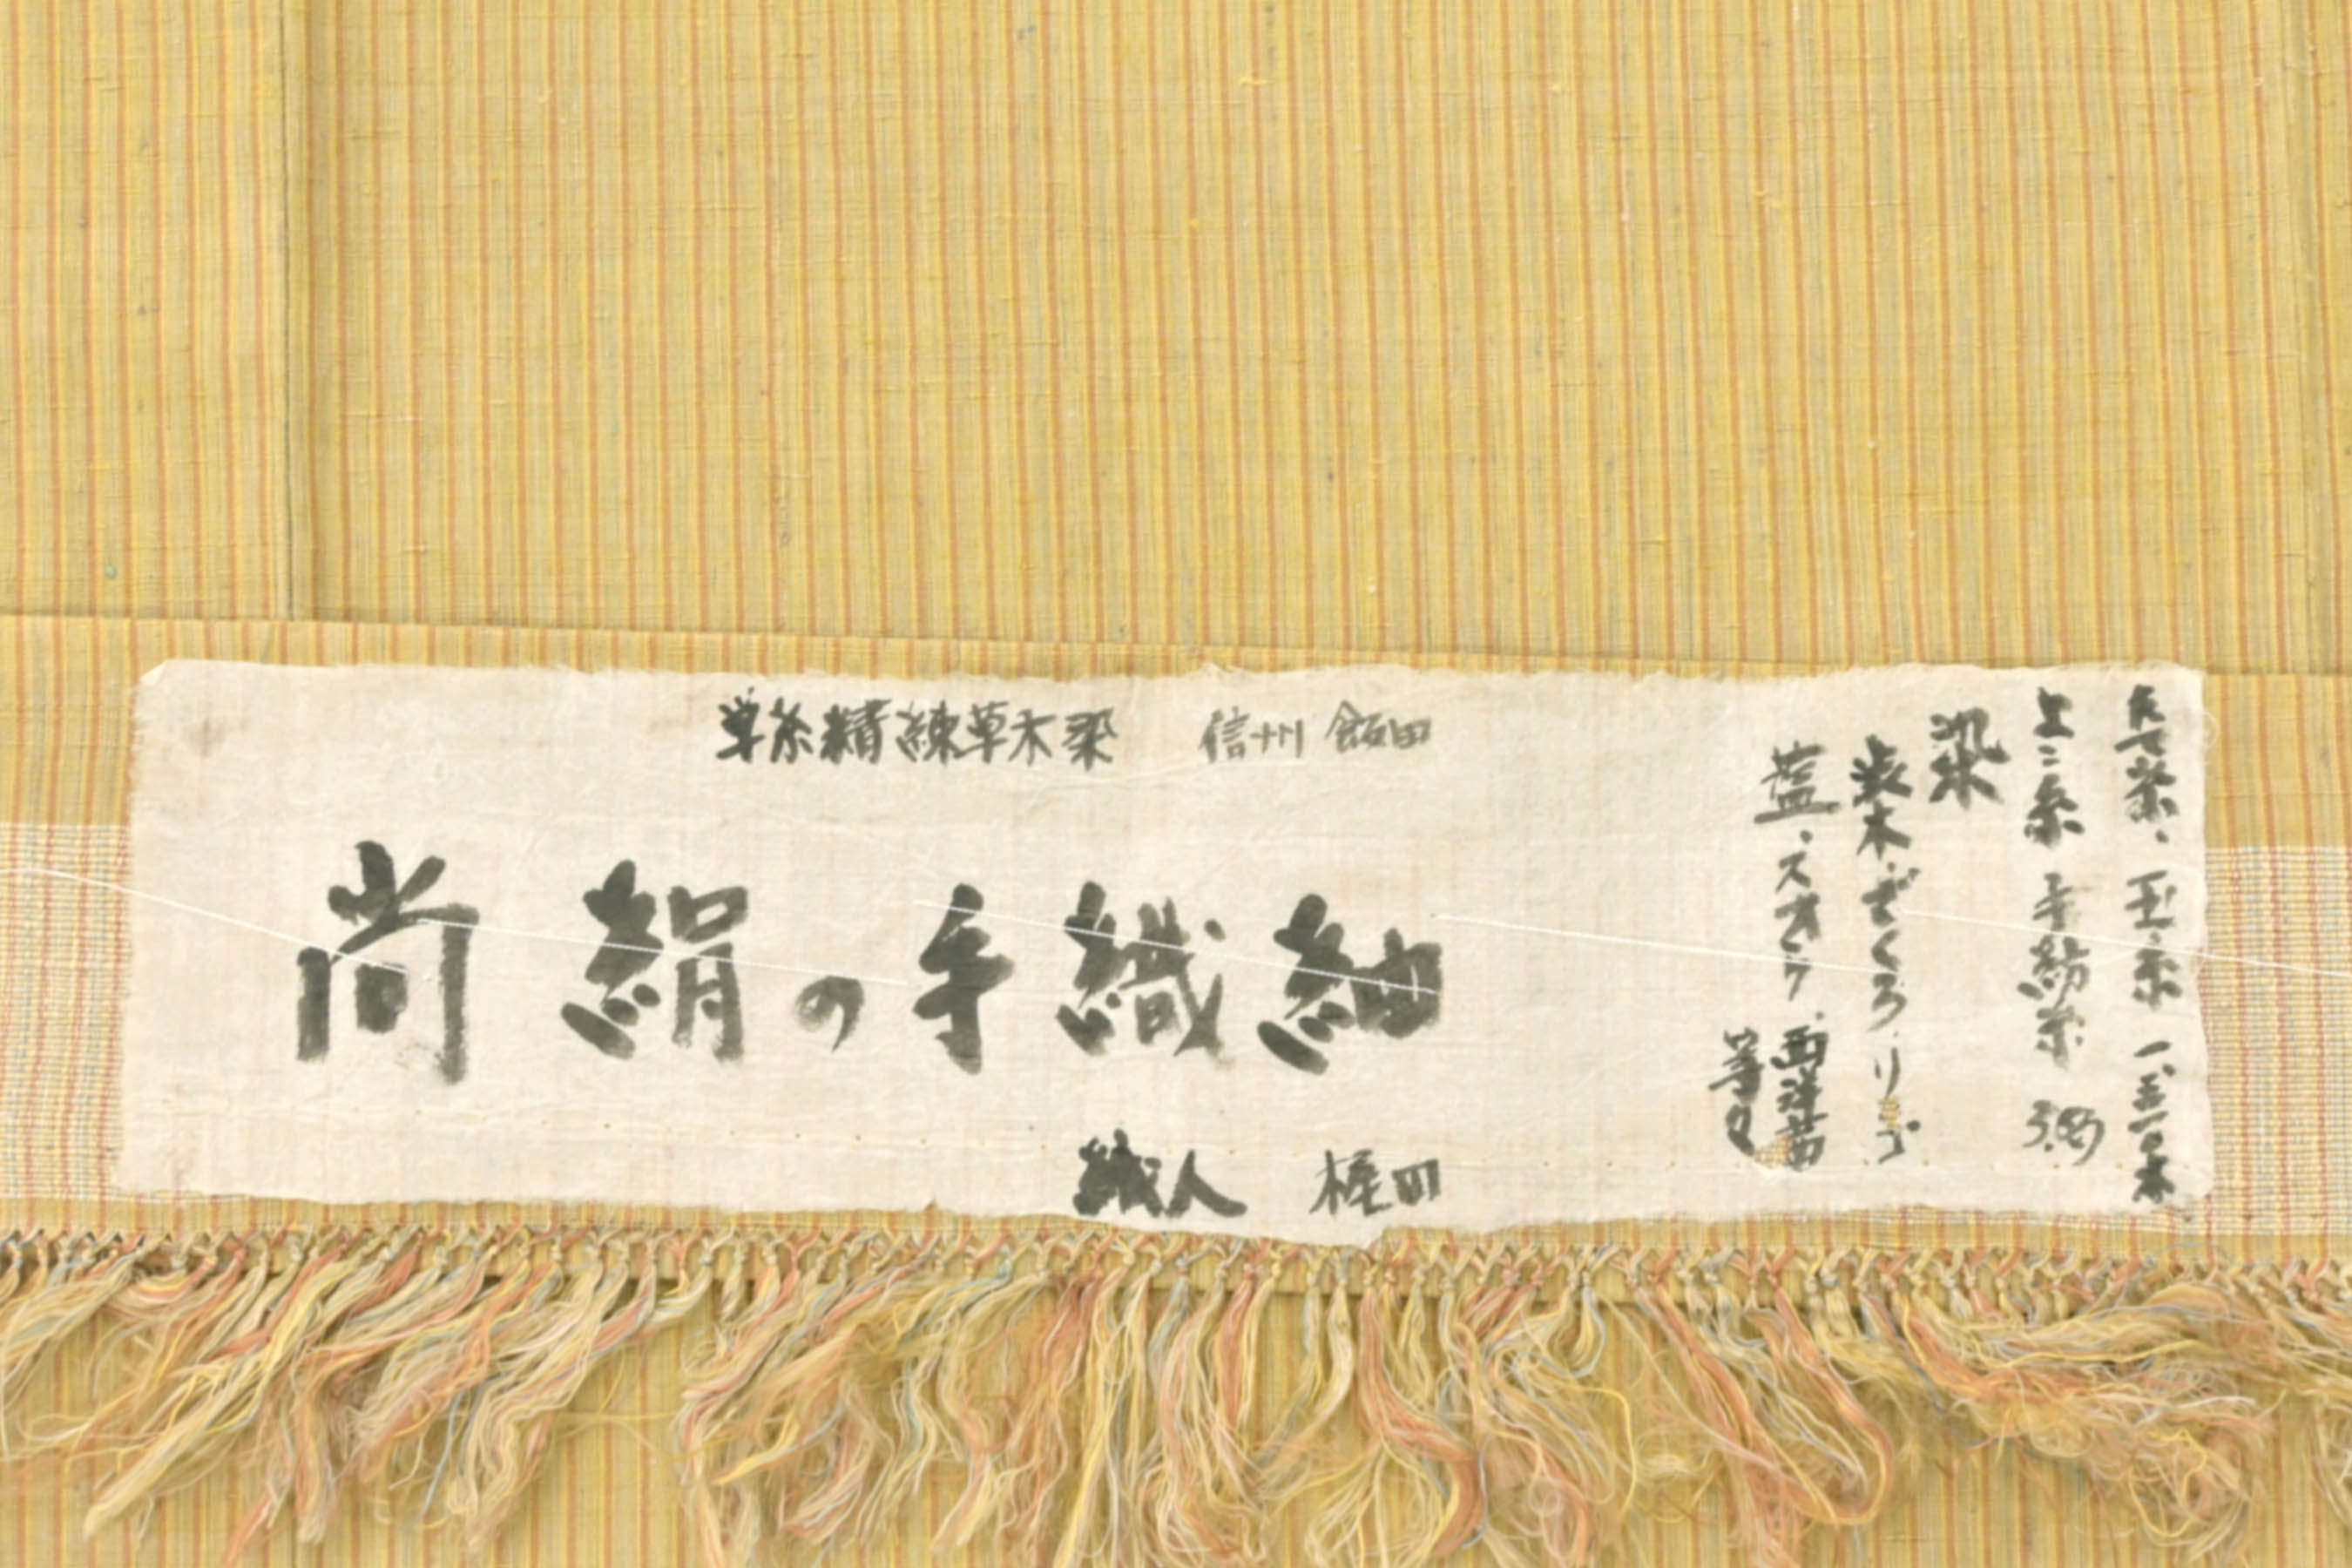 単糸精練草木染 信州 飯田
尚絹の手織紬
織人 樋田
たて糸、玉糸 一、三一〇本
よこ糸 手紡糸
染
渋木・ざくろ・リンゴ
藍・スオウ・西洋茜
等々